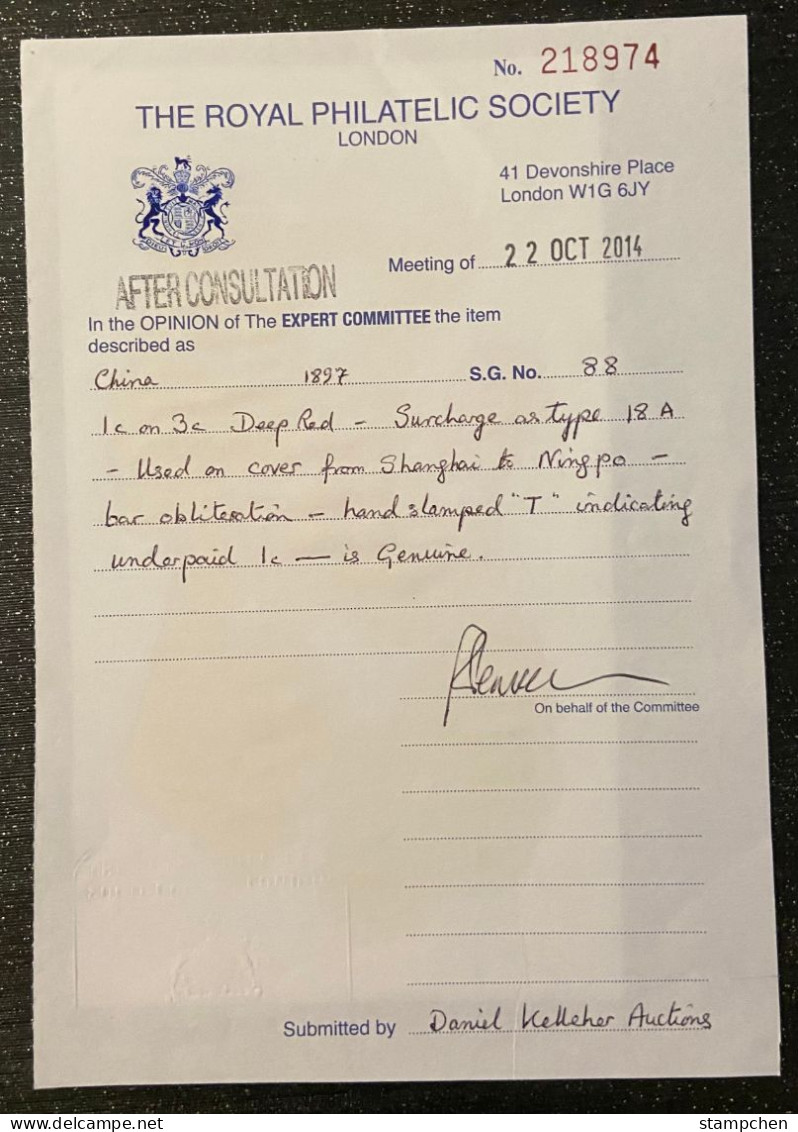 No. 218974
THE ROYAL PHILATELIC SOCIETY
LONDON
41 Devonshire Place
London W1G 6JY
Meeting of 22 OCT 2014
AFTER CONSULTATION
In the OPINION of The EXPERT COMMITTEE the item
described as
China 1897 S.G. No. 88
1c on 3c Deep Red - Surcharge as type 18A
- Used on cover from Shanghai to Ningpo -
bar obliteration - hand stamped "T" indicating
underpaid 1c — is Genuine.
On behalf of the Committee
Submitted by Daniel Kelleher Auctions
stampchen